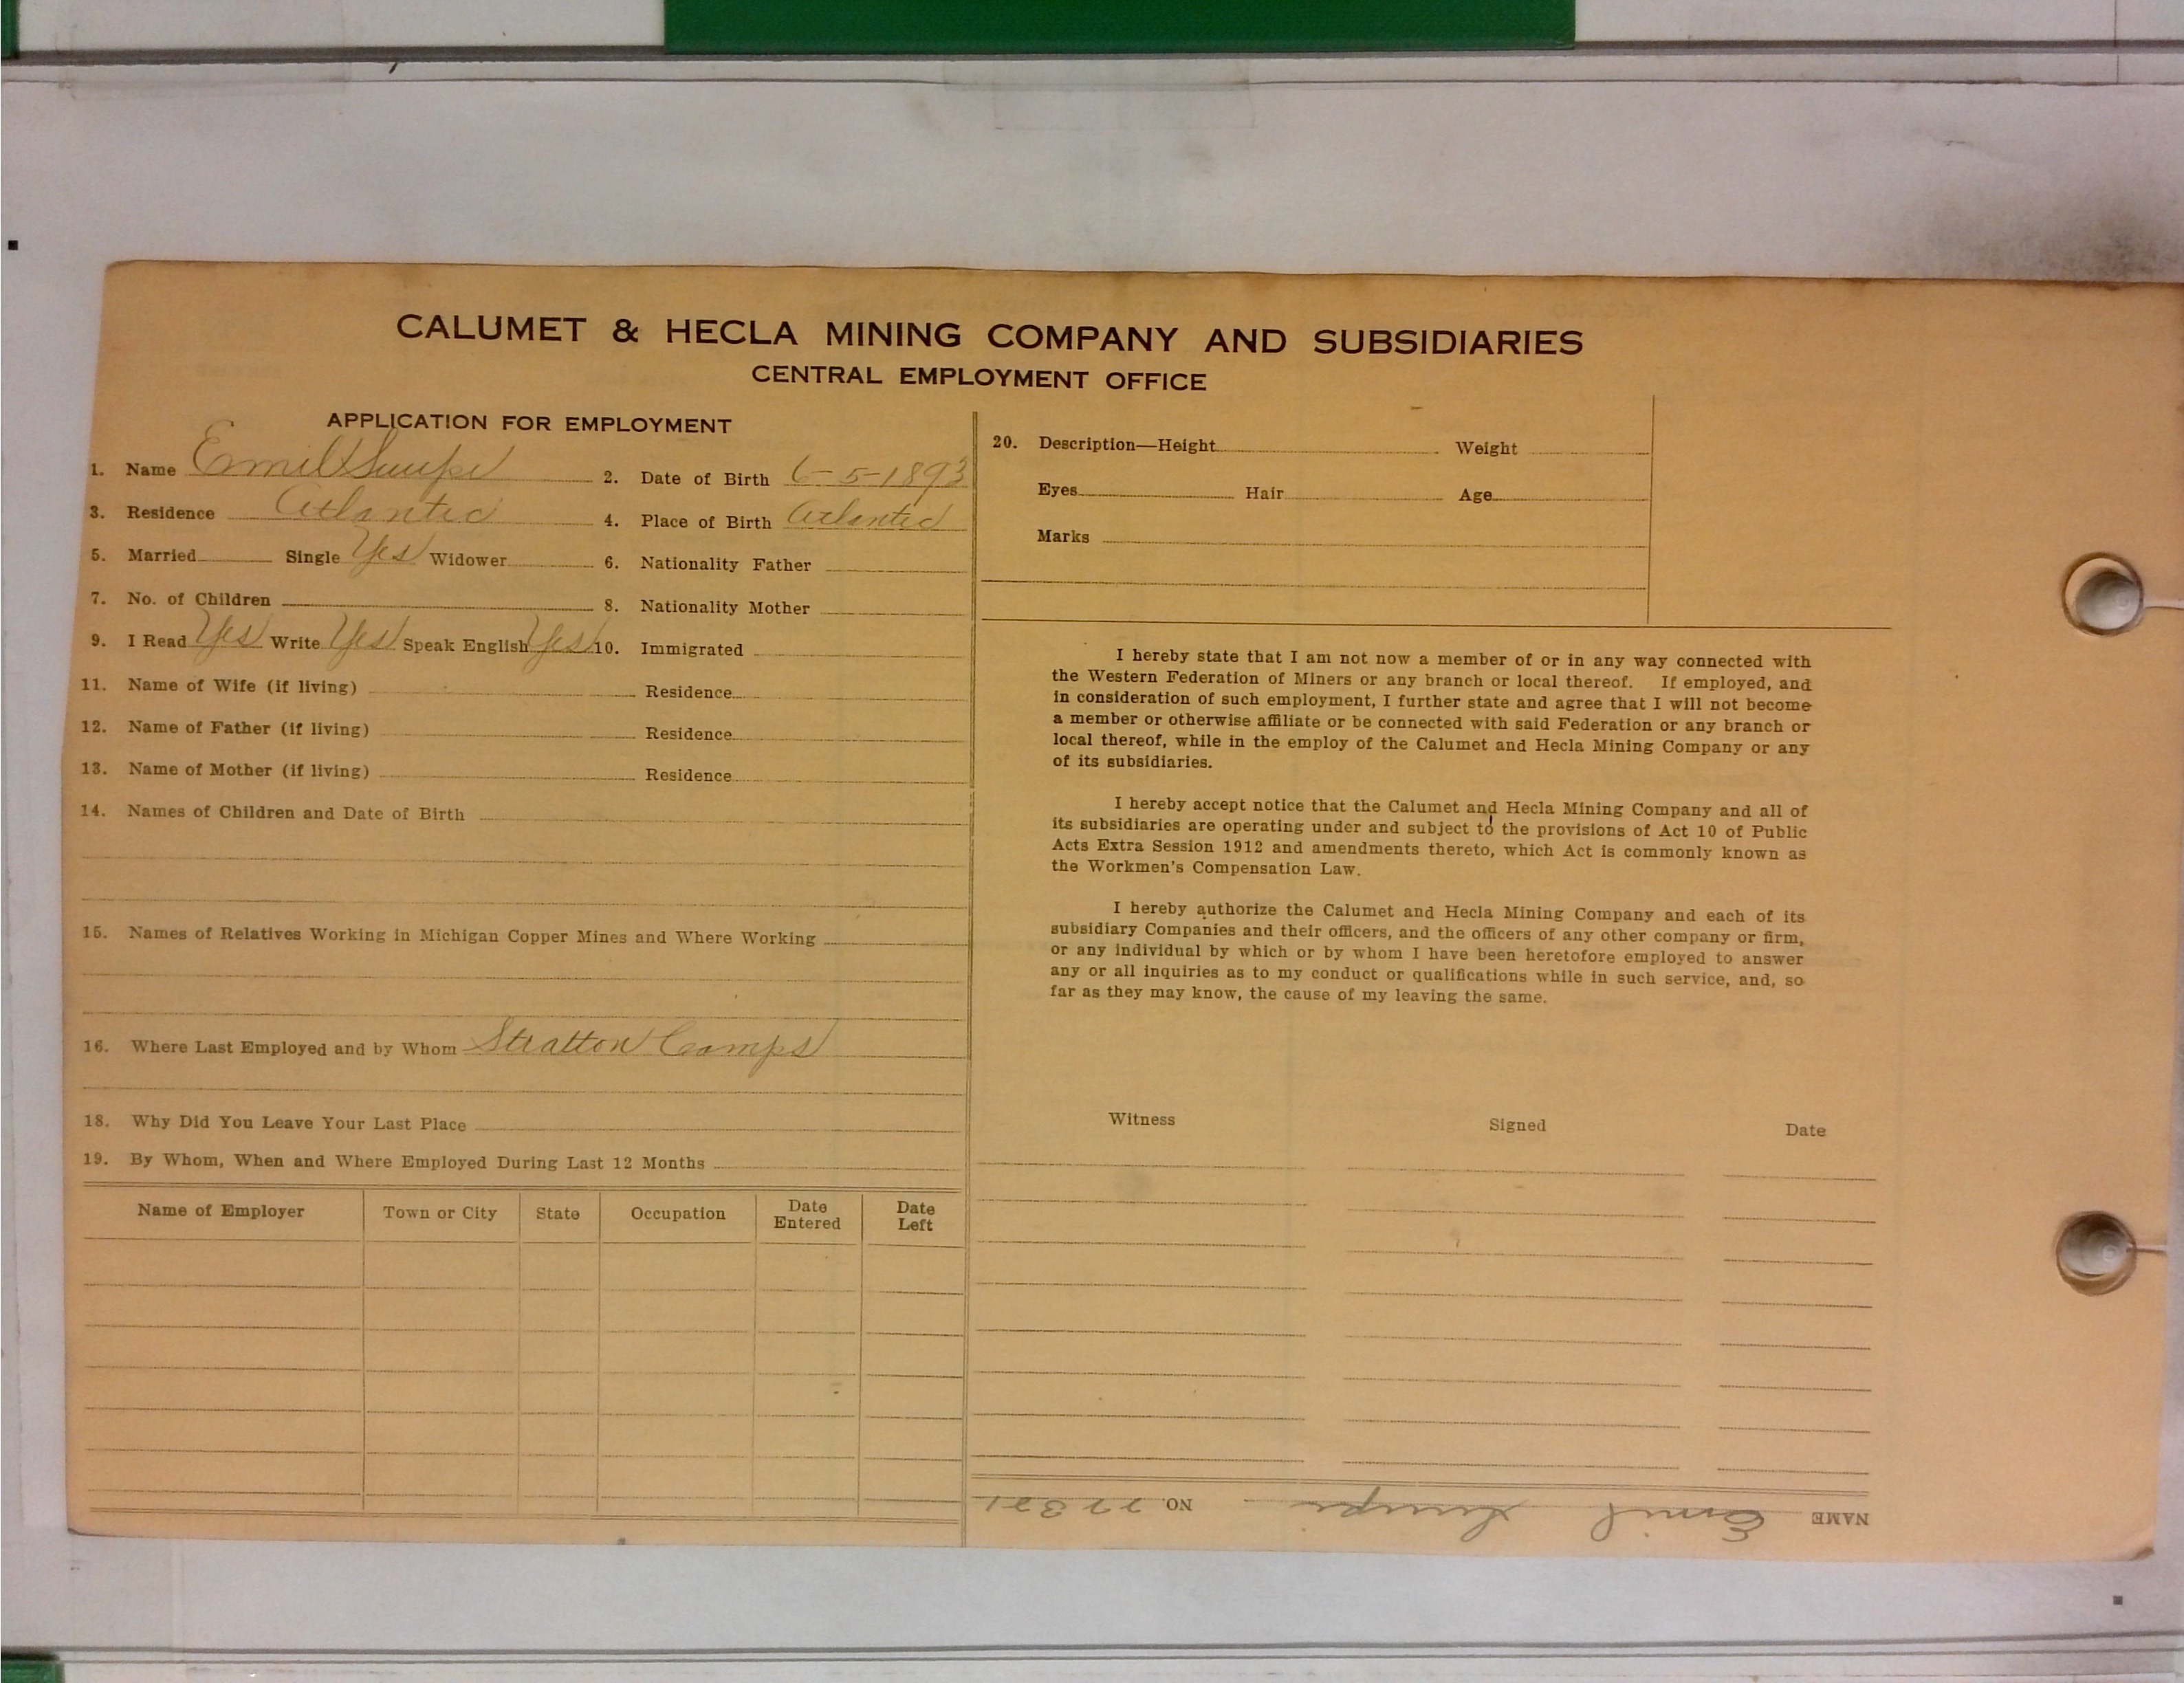 CALUMET & HECLA MINING COMPANY AND SUBSIDIARIES
CENTRAL EMPLOYMENT OFFICE
APPLICATION FOR EMPLOYMENT
1. Name Emil 2. Date of Birth 6-5-1893
3. Residence Atlantic 4. Place of Birth Atlantic
5. Married Single Yes Widower 6. Nationality Father
7. No. of Children 8. Nationality Mother
9. I Read Yes Write Yes Speak English Yes 10. Immigrated
11. Name of Wife (if living) Residence
12. Name of Father (if living) Residence
13. Name of Mother (if living) Residence
14. Names of Children and Date of Birth
15. Names of Relatives Working in Michigan Copper Mines and Where Working
16. Where Last Employed and by Whom Stratton Camps
18. Why Did You Leave Your Last Place
19. By Whom, When and Where Employed During Last 12 Months
Name of Employer Town or City State Occupation Date Entered Date Left
20. Description—Height Weight
Eyes Hair Age
Marks
I hereby state that I am not now a member of or in any way connected with
the Western Federation of Miners or any branch or local thereof. If employed, and
in consideration of such employment, I further state and agree that I will not become
a member or otherwise affiliate or be connected with said Federation or any branch or
local thereof, while in the employ of the Calumet and Hecla Mining Company or any
of its subsidiaries.
I hereby accept notice that the Calumet and Hecla Mining Company and all of
its subsidiaries are operating under and subject to the provisions of Act 10 of Public
Acts Extra Session 1912 and amendments thereto, which Act is commonly known as
the Workmen's Compensation Law.
I hereby authorize the Calumet and Hecla Mining Company and each of its
subsidiary Companies and their officers, and the officers of any other company or firm,
or any individual by which or by whom I have been heretofore employed to answer
any or all inquiries as to my conduct or qualifications while in such service, and, so
far as they may know, the cause of my leaving the same.
Witness Signed Date
NAME Emil NO.